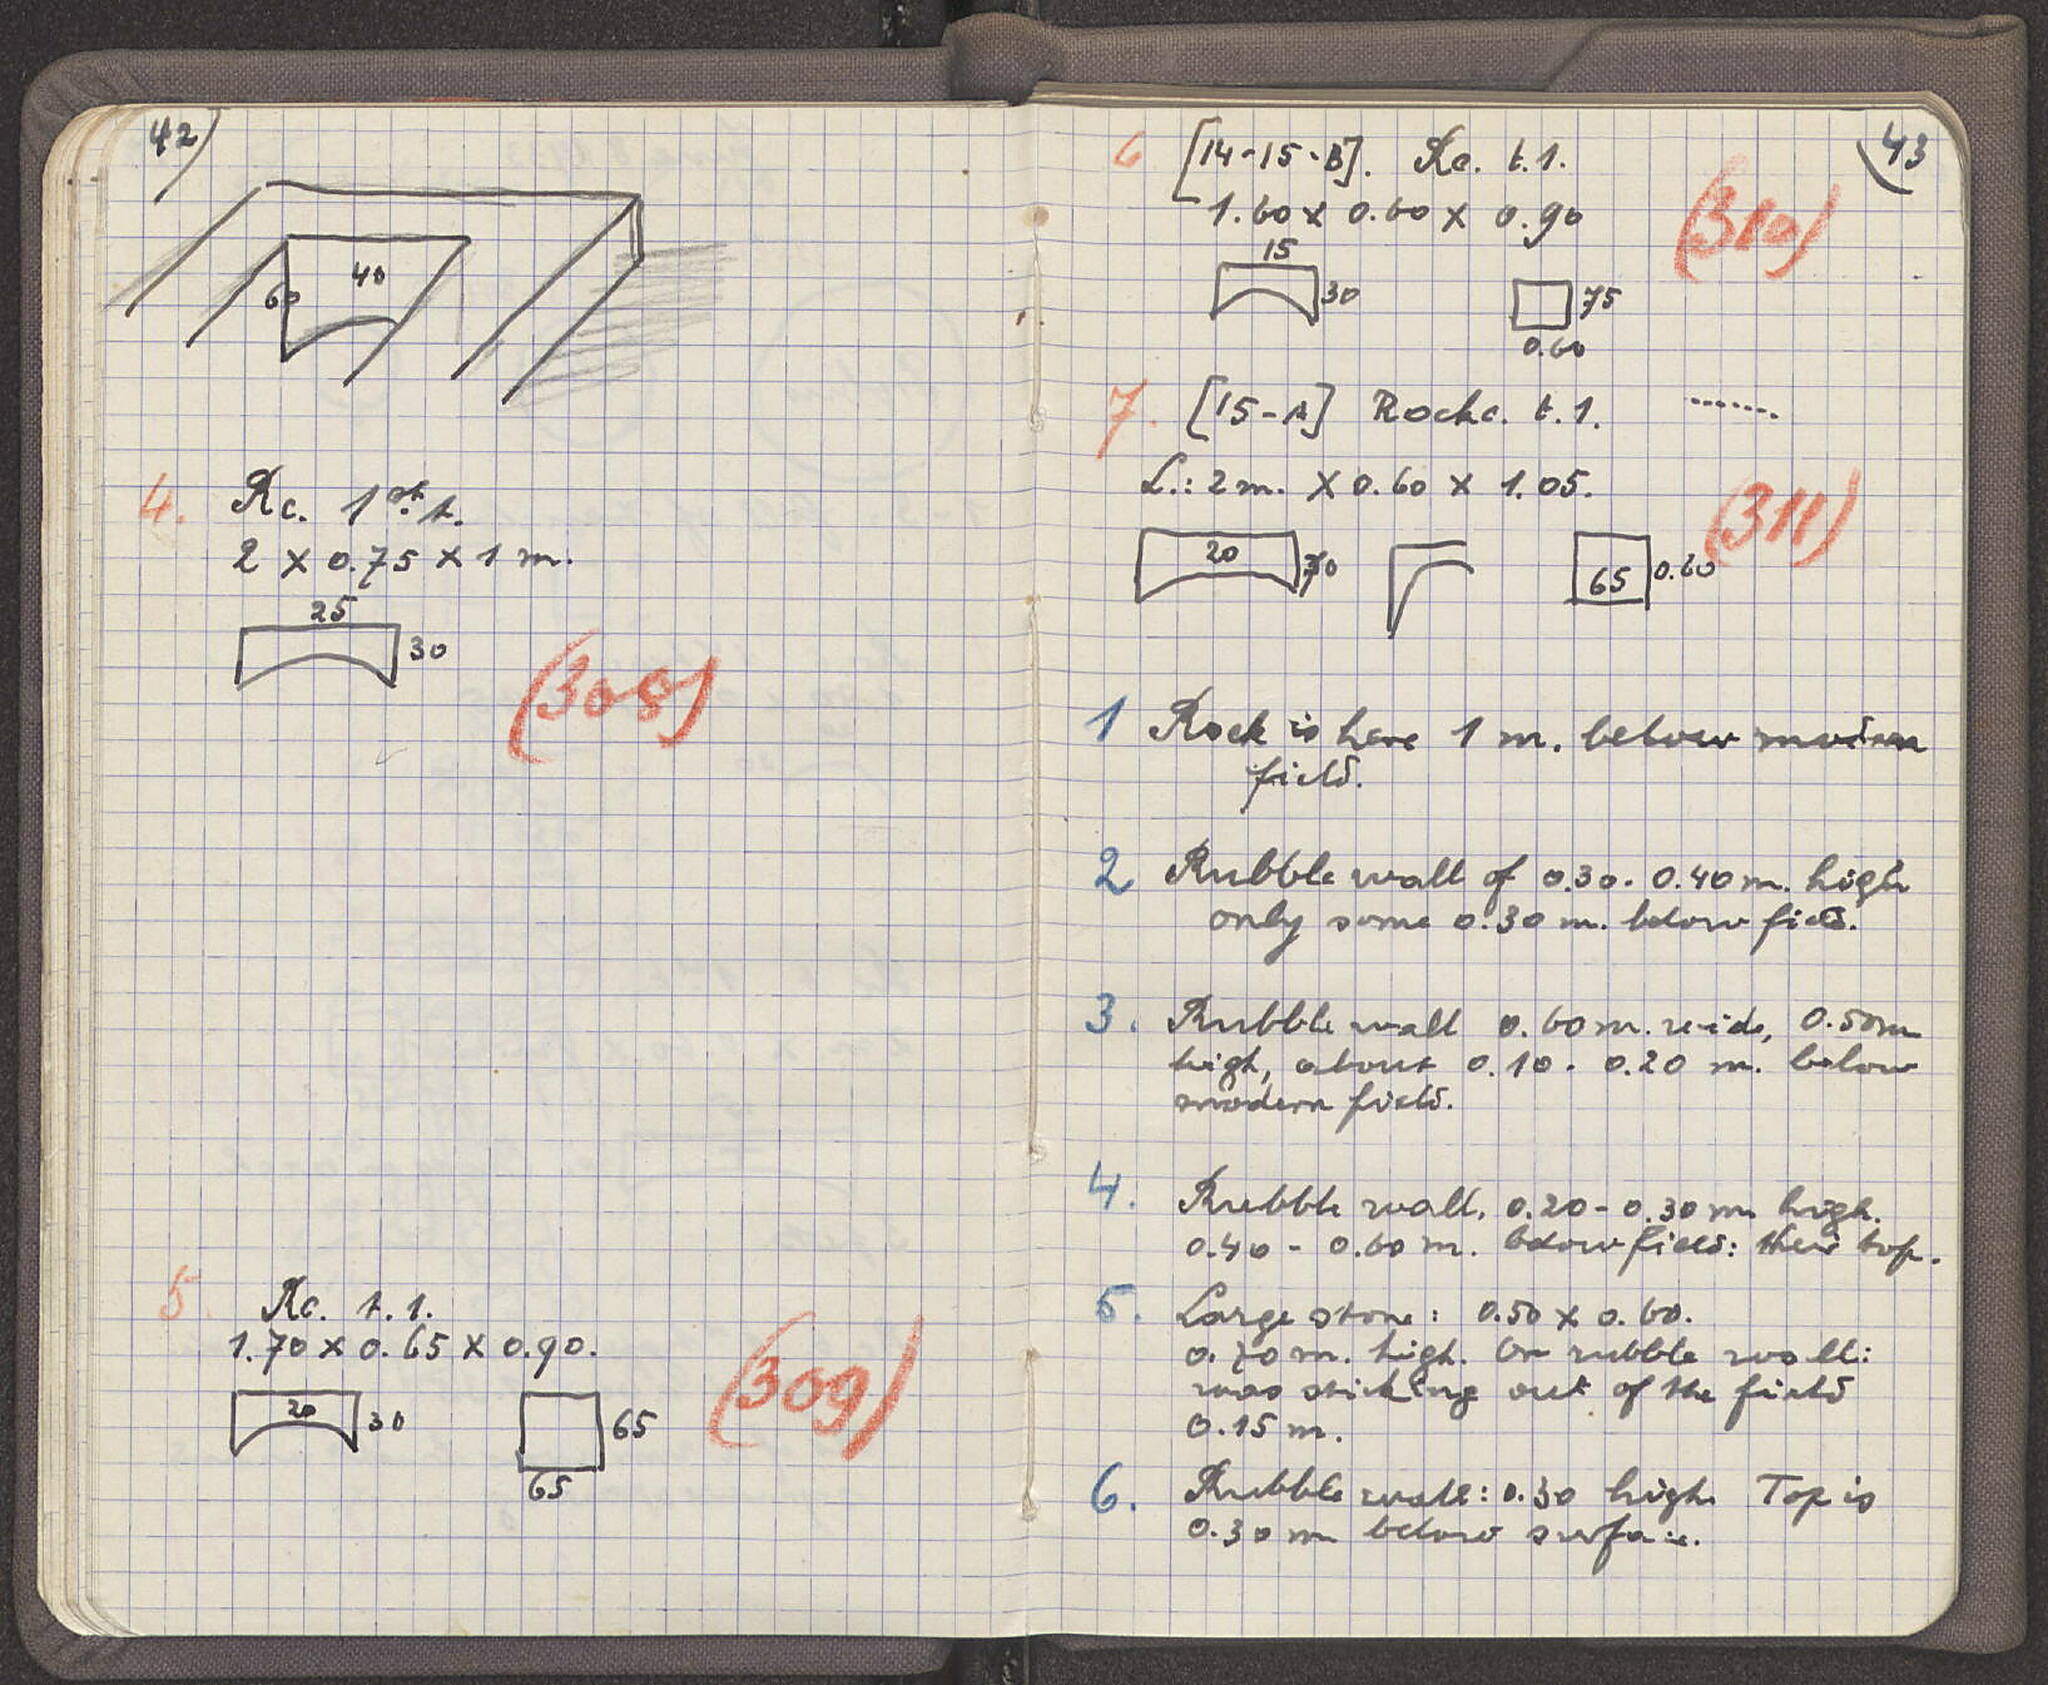 42)
40
60
4. Rc. 1st t.
2 x 0.75 x 1 m.
25
30
(308)
5. Rc. t. 1.
1.70 x 0.65 x 0.90.
20
30
65
65
(309)
43
6 [14-15-B]. Rc. t. 1.
1.60 x 0.60 x 0.90
(310)
15
30
75
0.60
7. [15-A] Rockc. t. 1.
L.: 2 m. x 0.60 x 1.05.
(311)
20
65
0.60
1 Rock is here 1 m. below modern
field.
2 Rubble wall of 0.30-0.40 m. high
only some 0.30 m. below field.
3. Rubble wall 0.60 m. wide, 0.50 m
high, about 0.10-0.20 m. below
modern field.
4. Rubble wall, 0.20-0.30 m high.
0.40-0.60 m. below field: their top.
5. Large stone: 0.50 x 0.60.
0.70 m. high. On rubble wall:
was sticking out of the field
0.15 m.
6. Rubble wall: 0.30 high. Top is
0.30 m below surface.